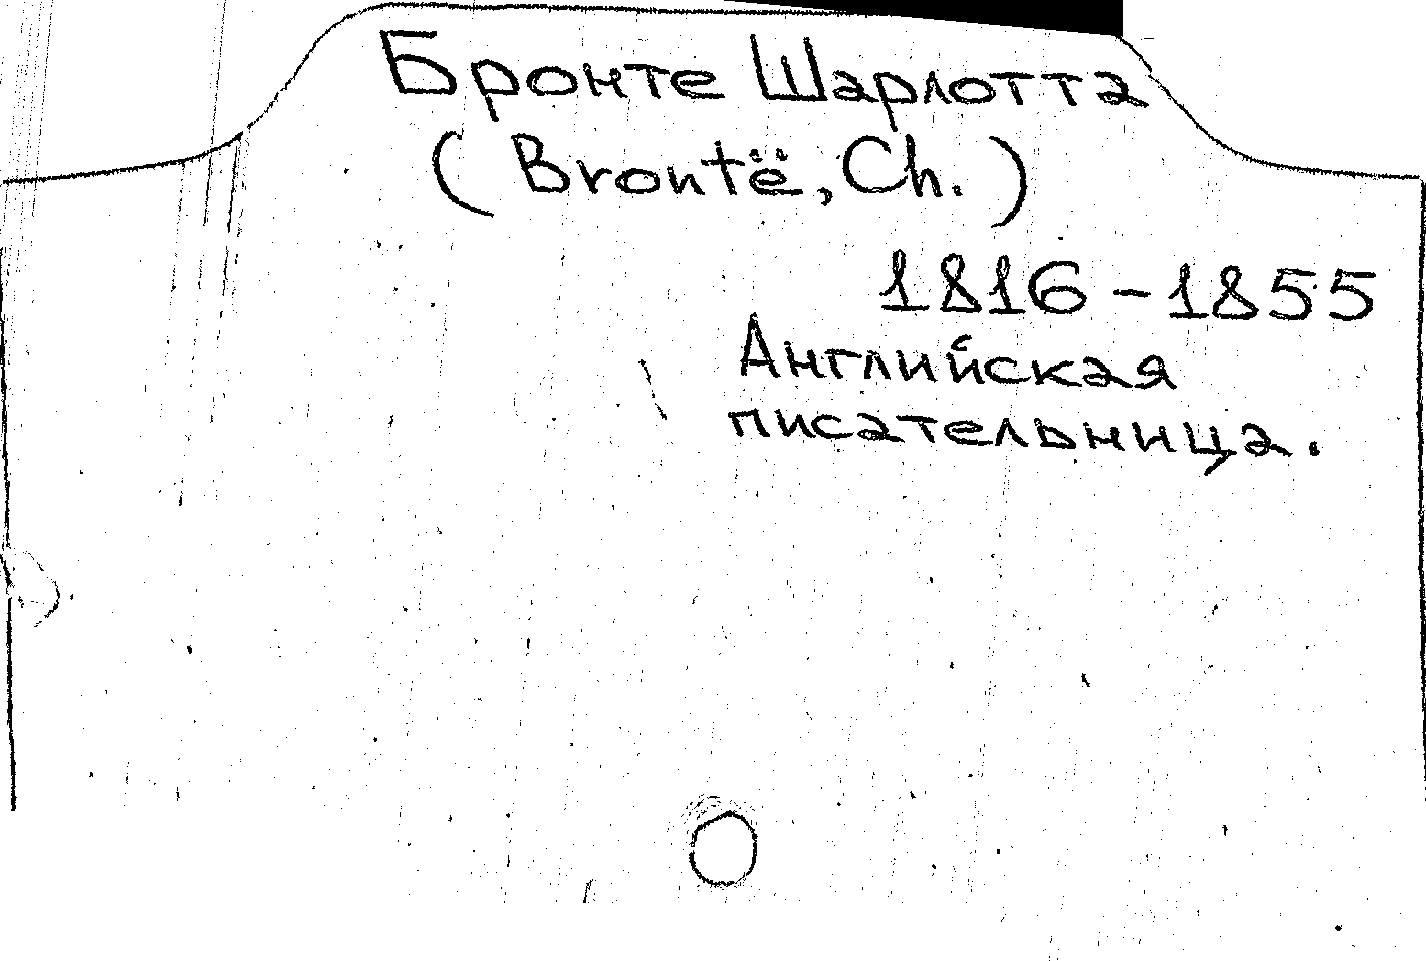 Бронте Шарлотта
(Brontë, Ch.)
1816 - 1855
Английская
писательница.